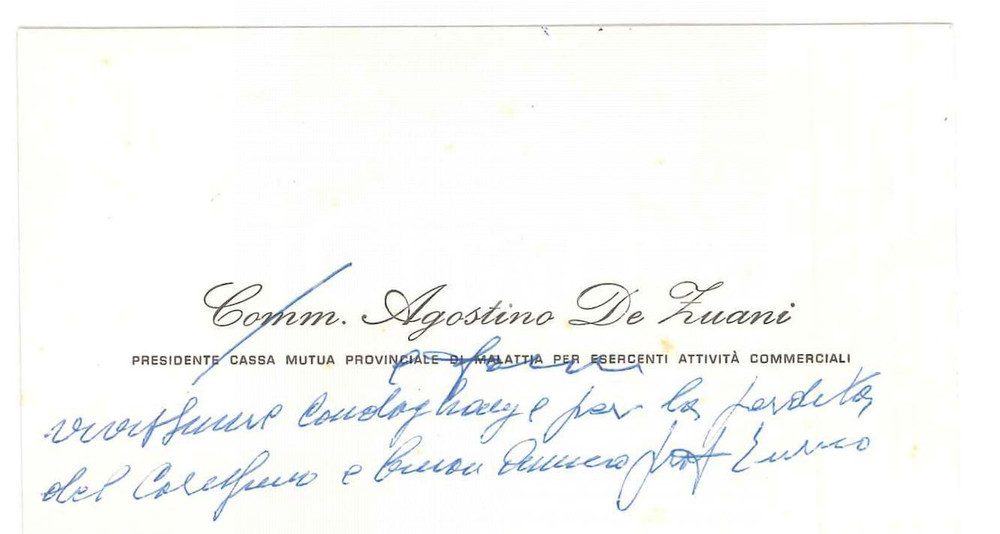 Comm. Agostino De Zuani
PRESIDENTE CASSA MUTUA PROVINCIALE DI MALATTIA PER ESERCENTI ATTIVITÀ COMMERCIALI
e
vivissime condoglianze per la perdita
del Carissimo e buon Amico prof